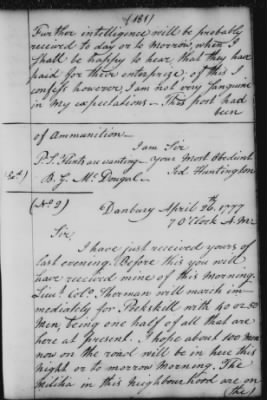 (181)
Further intelligence will be probably
received to day or to morrow, when I
shall be happy to hear, that they have
paid for their enterprize, of this I
confess however, I am not very sanguine
in my expectations — This post had
been
of Ammunition —
I am Sir
P.S. Flints are wanting — your most Obedient
B. G. Mc Dougal. Jed. Huntington
(No 9) Danbury April 26th 1777
7 O'Clock A.M.
Sir
I have just received yours of
last evening. Before this you will
have received mine of this Morning.
Lieut. Colo. Sherman will march im-
mediately for Peekskill with 40 or 50
Men, being one half of all that are
here at present. I hope about 100 men
now on the road will be in here this
night or to morrow Morning. The
Militia in this Neighbourhood are on
(the)